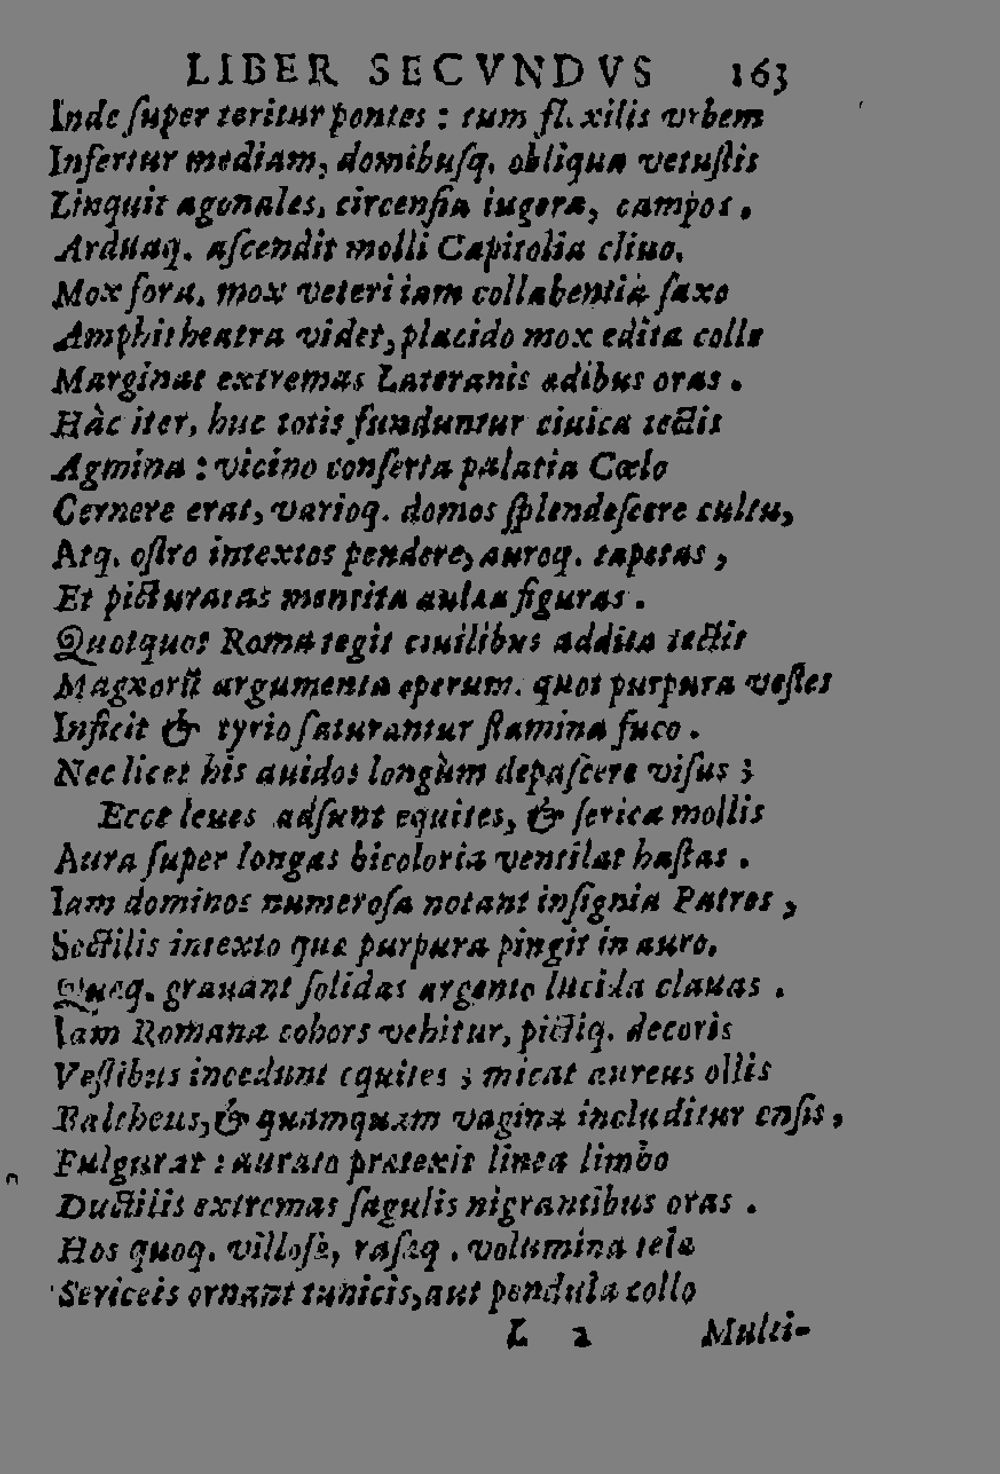 LIBER SECVNDVS 163
Inde ſuper teritur pontes : tum fl.xilis vrbem
Inſertur mediam, domibuſq. obliqua vetuſtis
Linquit agonales, circenſia iugera, campos.
Arduaq. aſcendit molli Capitolia cliuo,
Mox fora, mox veteri iam collabentia ſaxo
Amphitheatra videt, placido mox edita colle
Marginat extremas Lateranis ædibus oras.
Hàc iter, huc totis funduntur ciuica tectis
Agmina : vicino conſerta palatia Cœlo
Cernere erat, varioq. domos ſplendeſcere cultu,
Atq. oſtro intextos pendere, auroq. tapetas,
Et picturatas mentita aulæa figuras.
Quotquot Roma tegit ciuilibus addita tectis
Magnorũ argumenta operum. quot purpura veſtes
Inficit & tyrio ſaturantur ſtamina fuco.
Nec licet his auidos longùm depaſcere viſus ;
Ecce leues adſunt equites, & ſerica mollis
Aura ſuper longas bicoloria ventilat haſtas.
Iam dominos numeroſa notant inſignia Patres,
Sectilis intexto quæ purpura pingit in auro,
Quæq. grauant ſolidas argento lucida clauas.
Iam Romana cohors vehitur, pictiq. decoris
Veſtibus incedunt equites ; micat aureus ollis
Baltheus, & quamquam vagina includitur enſis,
Fulgurat : aurato prætexit linea limbo
Ductilis extremas ſagulis nigrantibus oras.
Hos quoq. villoſæ, raſæq. volumina telæ
Sericeis ornant tunicis, aut pendula collo
L 2 Multi-